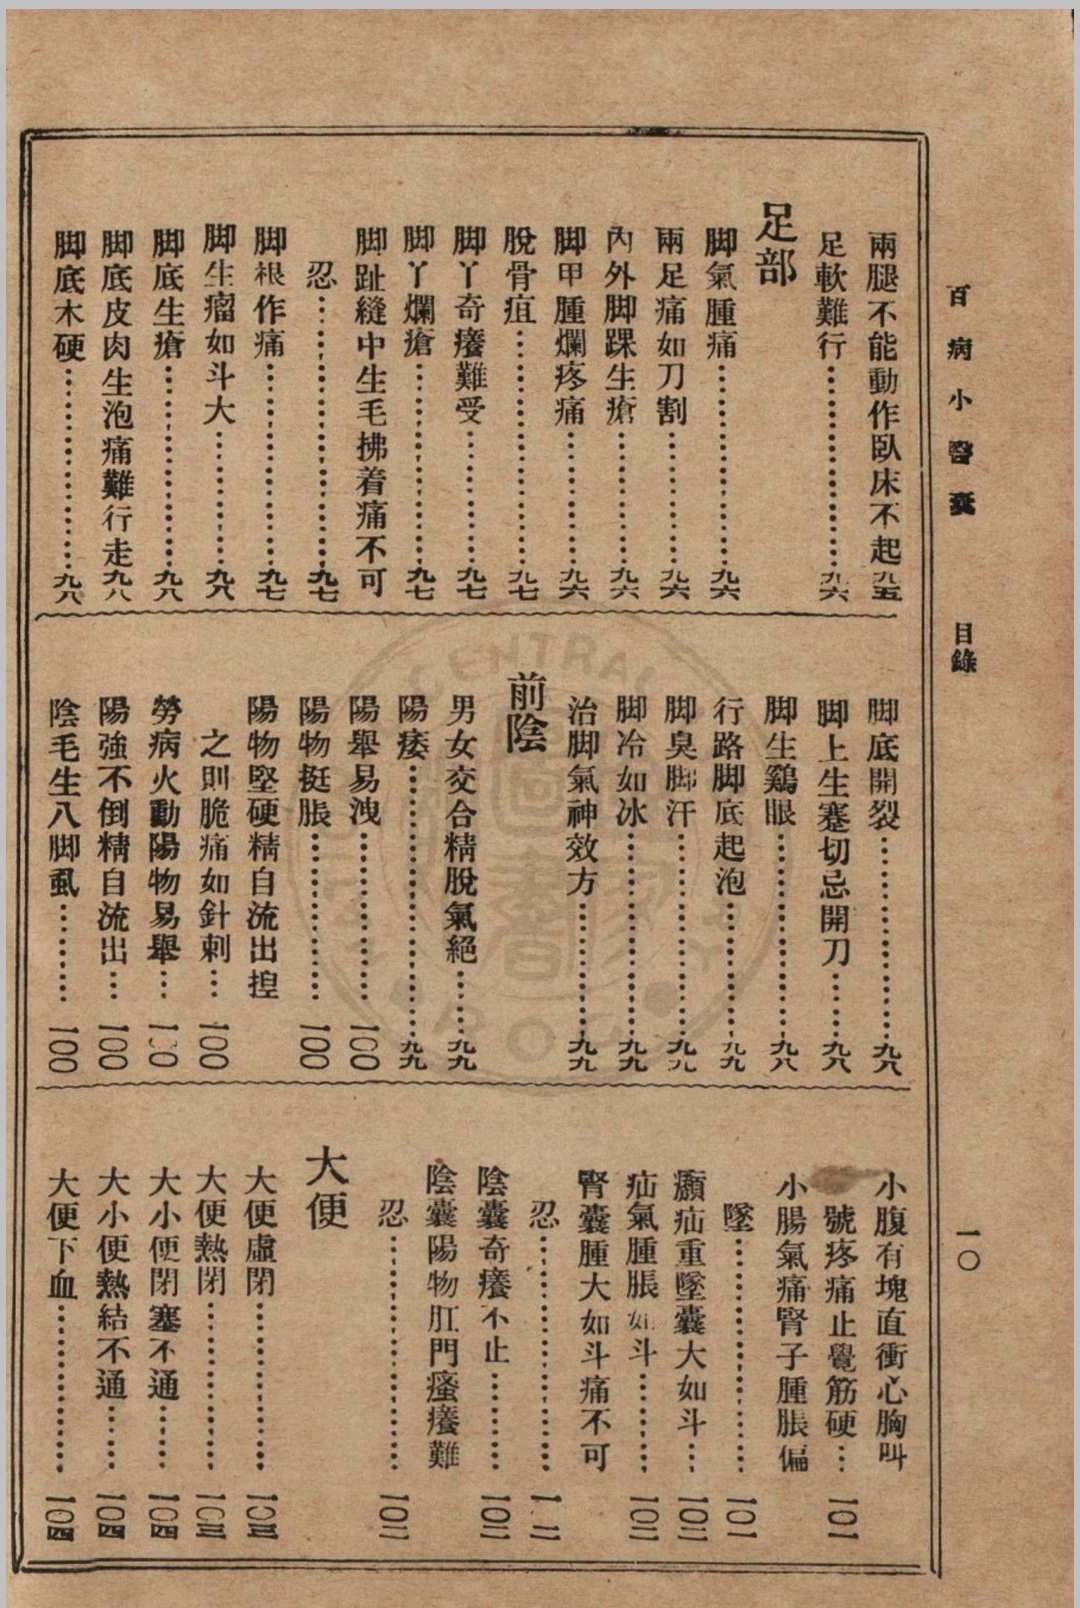 百病小醫囊　目錄　一〇
兩腿不能動作臥床不起九五
足軟難行……九六
足部
脚氣腫痛……九六
兩足痛如刀割……九六
內外脚踝生瘡……九六
脚甲腫爛疼痛……九六
脫骨疽……九七
脚丫奇癢難受……九七
脚丫爛瘡……九七
脚趾縫中生毛拂着痛不可
忍……九七
脚根作痛……九七
脚生瘤如斗大……九八
脚底生瘡……九八
脚底皮肉生泡痛難行走九八
脚底木硬……九八
脚底開裂……九八
脚上生蹇切忌開刀……九八
脚生鷄眼……九八
行路脚底起泡……九九
脚臭脚汗……九九
脚冷如冰……九九
治脚氣神效方……九九
前陰
男女交合精脫氣絕……九九
陽痿……九九
陽舉易洩……一〇〇
陽物挺脹……一〇〇
陽物堅硬精自流出揑
之則脆痛如針刺…一〇〇
勞病火動陽物易舉…一〇〇
陽強不倒精自流出…一〇〇
陰毛生八脚虱……一〇〇
小腹有塊直衝心胸叫
號疼痛止覺筋硬…一〇一
小腸氣痛腎子腫脹偏
墜……一〇一
㿗疝重墜囊大如斗…一〇二
疝氣腫脹如斗……一〇二
腎囊腫大如斗痛不可
忍……一〇二
陰囊奇癢不止……一〇二
陰囊陽物肛門瘙癢難
忍……一〇二
大便
大便虛閉……一〇三
大便熱閉……一〇三
大小便閉塞不通……一〇四
大小便熱結不通……一〇四
大便下血……一〇四